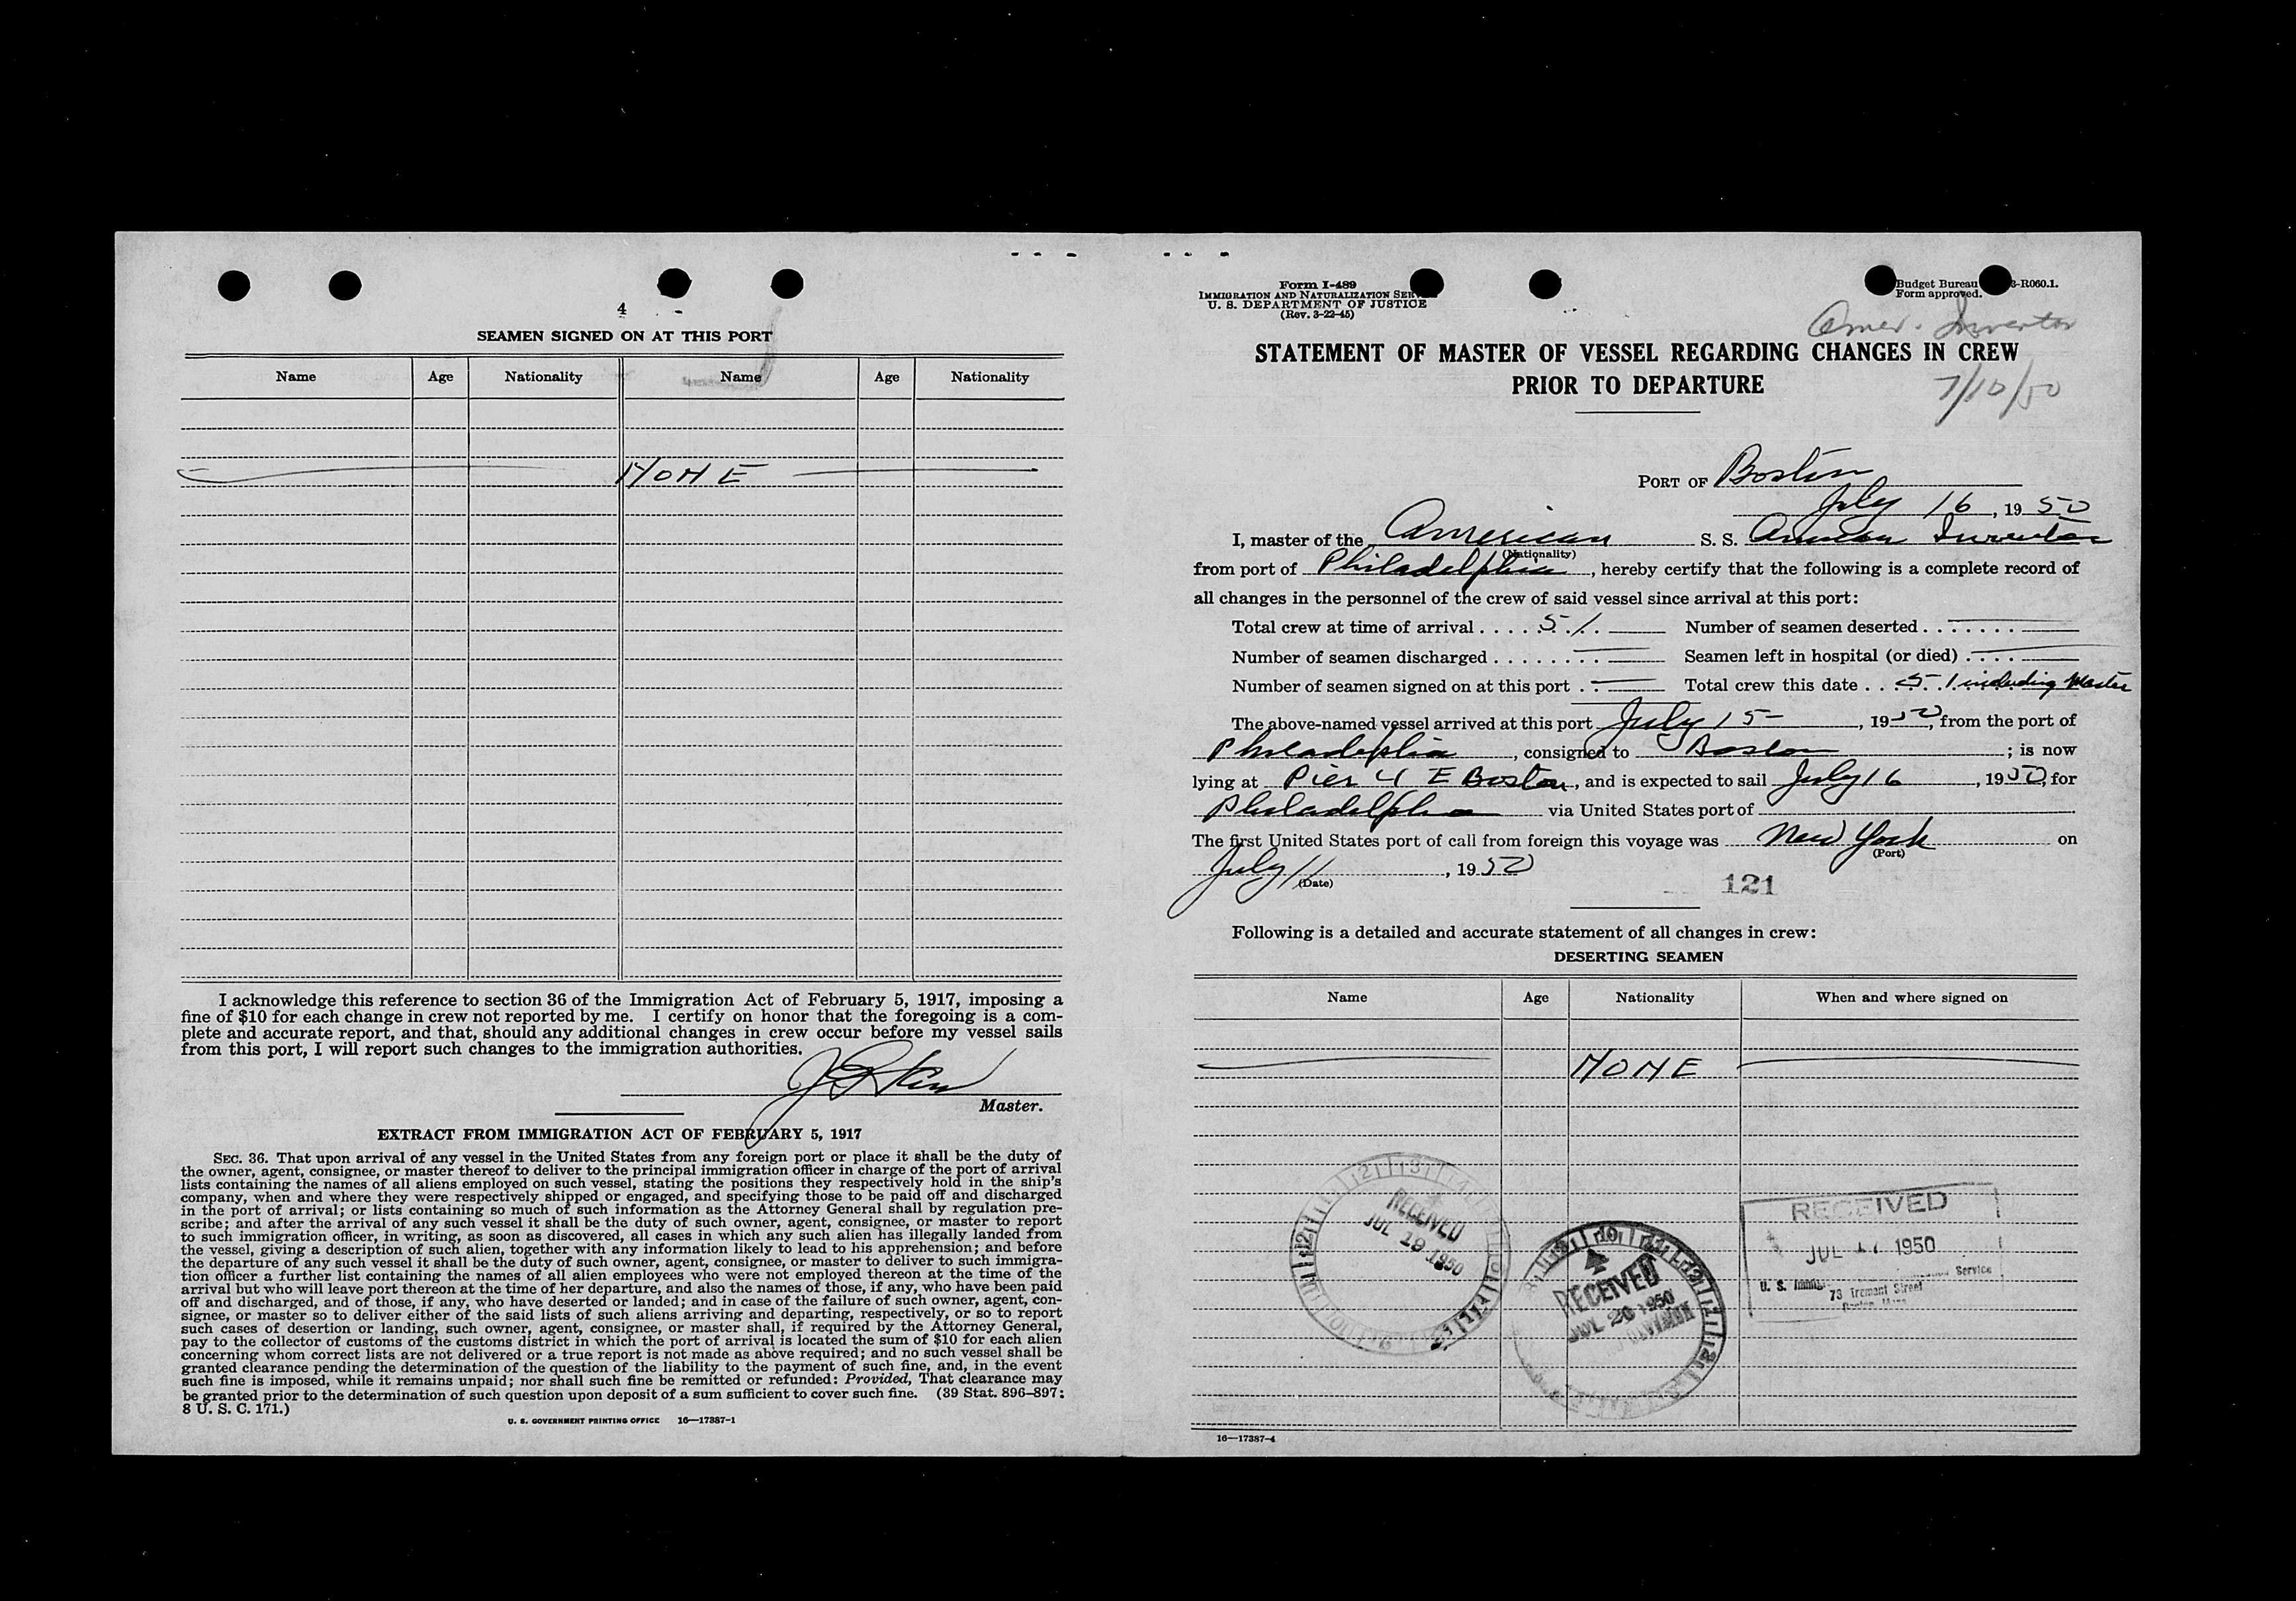 4
SEAMEN SIGNED ON AT THIS PORT
Name Age Nationality Name Age Nationality
NONE
I acknowledge this reference to section 36 of the Immigration Act of February 5, 1917, imposing a
fine of $10 for each change in crew not reported by me. I certify on honor that the foregoing is a com-
plete and accurate report, and that, should any additional changes in crew occur before my vessel sails
from this port, I will report such changes to the immigration authorities.
Master.
EXTRACT FROM IMMIGRATION ACT OF FEBRUARY 5, 1917
SEC. 36. That upon arrival of any vessel in the United States from any foreign port or place it shall be the duty of
the owner, agent, consignee, or master thereof to deliver to the principal immigration officer in charge of the port of arrival
lists containing the names of all aliens employed on such vessel, stating the positions they respectively hold in the ship's
company, when and where they were respectively shipped or engaged, and specifying those to be paid off and discharged
in the port of arrival; or lists containing so much of such information as the Attorney General shall by regulation pre-
scribe; and after the arrival of any such vessel it shall be the duty of such owner, agent, consignee, or master to report
to such immigration officer, in writing, as soon as discovered, all cases in which any such alien has illegally landed from
the vessel, giving a description of such alien, together with any information likely to lead to his apprehension; and before
the departure of any such vessel it shall be the duty of such owner, agent, consignee, or master to deliver to such immigra-
tion officer a further list containing the names of all alien employees who were not employed thereon at the time of the
arrival but who will leave port thereon at the time of her departure, and also the names of those, if any, who have been paid
off and discharged, and of those, if any, who have deserted or landed; and in case of the failure of such owner, agent, con-
signee, or master so to deliver either of the said lists of such aliens arriving and departing, respectively, or so to report
such cases of desertion or landing, such owner, agent, consignee, or master shall, if required by the Attorney General,
pay to the collector of customs of the customs district in which the port of arrival is located the sum of $10 for each alien
concerning whom correct lists are not delivered or a true report is not made as above required; and no such vessel shall be
granted clearance pending the determination of the question of the liability to the payment of such fine, and, in the event
such fine is imposed, while it remains unpaid; nor shall such fine be remitted or refunded: Provided, That clearance may
be granted prior to the determination of such question upon deposit of a sum sufficient to cover such fine. (39 Stat. 896–897;
8 U. S. C. 171.)
U. S. GOVERNMENT PRINTING OFFICE 16—17387-1
Form I-489
IMMIGRATION AND NATURALIZATION
U. S. DEPARTMENT OF JUSTICE
(Rev. 3-22-45)
Budget Bureau -R060.1.
Form approved.
Amer. Inventor
STATEMENT OF MASTER OF VESSEL REGARDING CHANGES IN CREW
PRIOR TO DEPARTURE
7/10/50
PORT OF Boston
July 16, 19 50
I, master of the American S. S. American Inventor
(Nationality)
from port of Philadelphia, hereby certify that the following is a complete record of
all changes in the personnel of the crew of said vessel since arrival at this port:
Total crew at time of arrival 51 Number of seamen deserted
Number of seamen discharged Seamen left in hospital (or died)
Number of seamen signed on at this port Total crew this date 51 including Master
The above-named vessel arrived at this port July 15, 1950, from the port of
Philadelphia, consigned to Boston; is now
lying at Pier 4 E Boston, and is expected to sail July 16, 1950, for
Philadelphia via United States port of
The first United States port of call from foreign this voyage was New York on
(Port)
July 11, 1950
(Date)
121
Following is a detailed and accurate statement of all changes in crew:
DESERTING SEAMEN
Name Age Nationality When and where signed on
NONE
RECEIVED
JUL 19 1950
RECEIVED
JUL 20 1950
RECEIVED
JUL 17 1950
U. S. Service
73 Tremont Street
16—17387-4